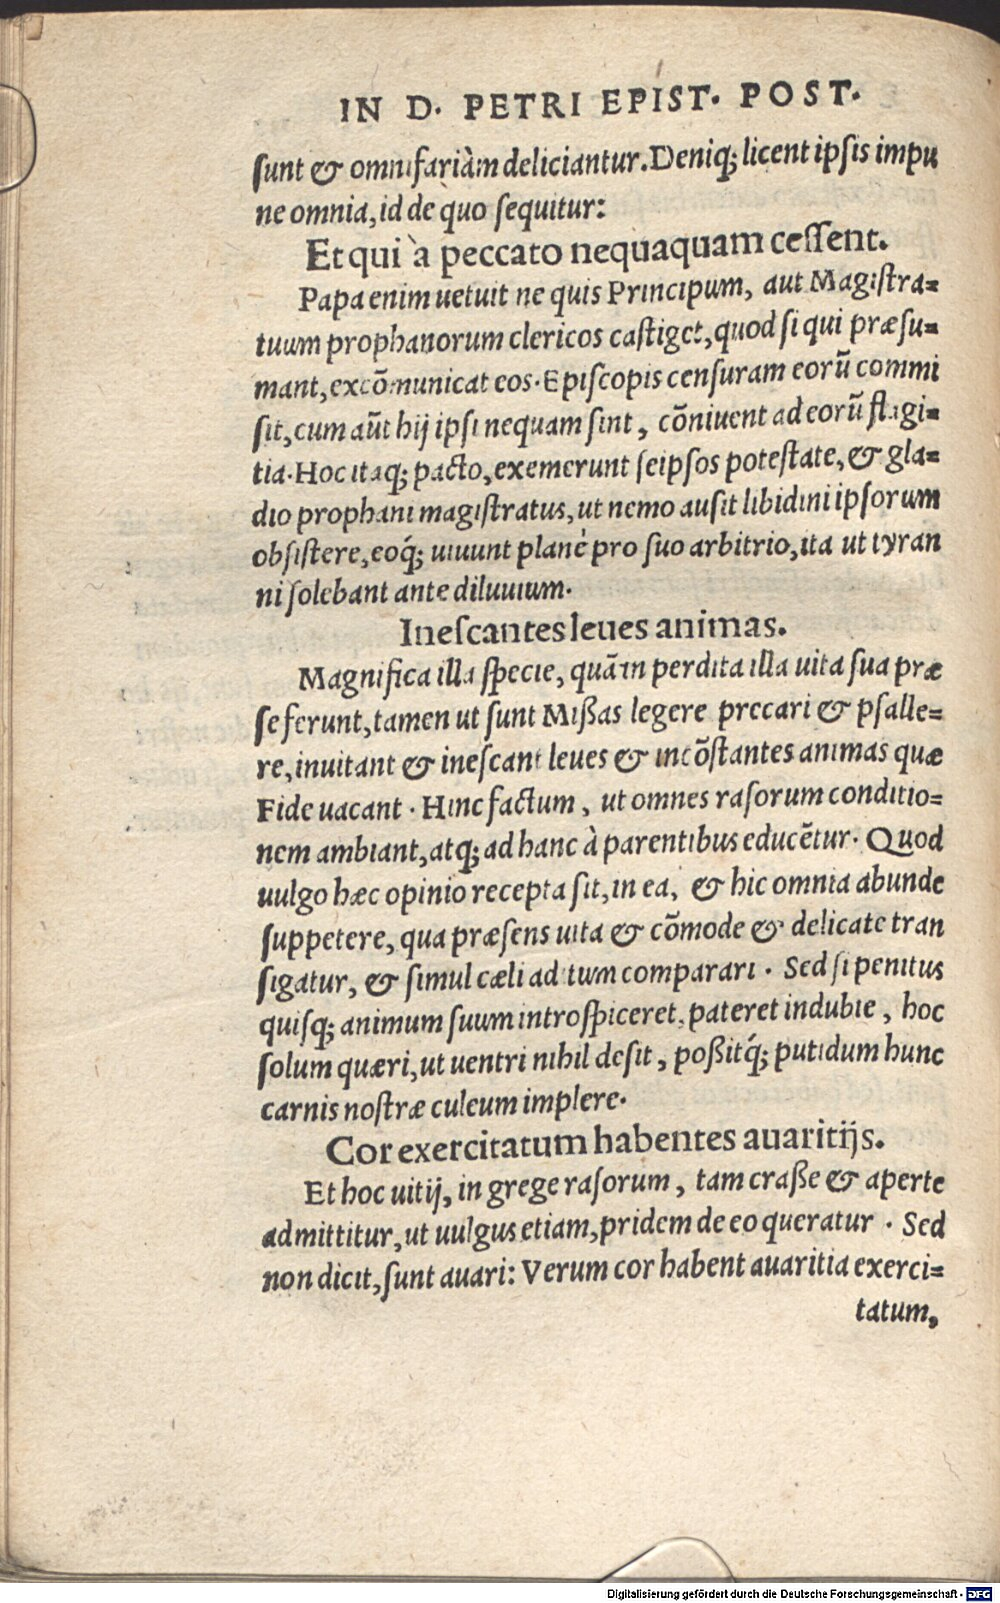 IN D. PETRI EPIST. POST.
ſunt & omnifariàm deliciantur. Deniq; licent ipſis impu
ne omnia, id de quo ſequitur:
Et qui à peccato nequaquam ceſſent.
Papa enim uetuit ne quis Principum, aut Magiſtra=
tuum prophanorum clericos caſtiget, quod ſi qui præſu=
mant, excōmunicat eos. Epiſcopis cenſuram eorū commi
ſit, cum aūt hij ipſi nequam ſint, cōniuent ad eorū flagi=
tia. Hoc itaq; pacto, exemerunt ſeipſos poteſtate, & gla=
dio prophani magiſtratus, ut nemo auſit libidini ipſorum
obſiſtere, eoq́; uiuunt planè pro ſuo arbitrio, ita ut tyran
ni ſolebant ante diluuium.
Ineſcantes leues animas.
Magnifica illa ſpecie, quā in perdita illa uita ſua præ
ſe ferunt, tamen ut ſunt Mißas legere precari & pſalle=
re, inuitant & ineſcant leues & incōſtantes animas quæ
Fide uacant. Hinc factum, ut omnes raſorum conditio=
nem ambiant, atq; ad hanc à parentibus educētur. Quod
uulgo hæc opinio recepta ſit, in ea, & hic omnia abunde
ſuppetere, qua præſens uita & cōmode & delicate tran
ſigatur, & ſimul cæli aditum comparari. Sed ſi penitus
quiſq; animum ſuum introſpiceret, pateret indubie, hoc
ſolum quæri, ut uentri nihil deſit, poßitq́; putidum hunc
carnis noſtræ culeum implere.
Cor exercitatum habentes auaritijs.
Et hoc uitij, in grege raſorum, tam craße & aperte
admittitur, ut uulgus etiam, pridem de eo queratur. Sed
non dicit, ſunt auari: Verum cor habent auaritia exerci=
tatum,
Digitalisierung gefördert durch die Deutsche Forschungsgemeinschaft - DFG